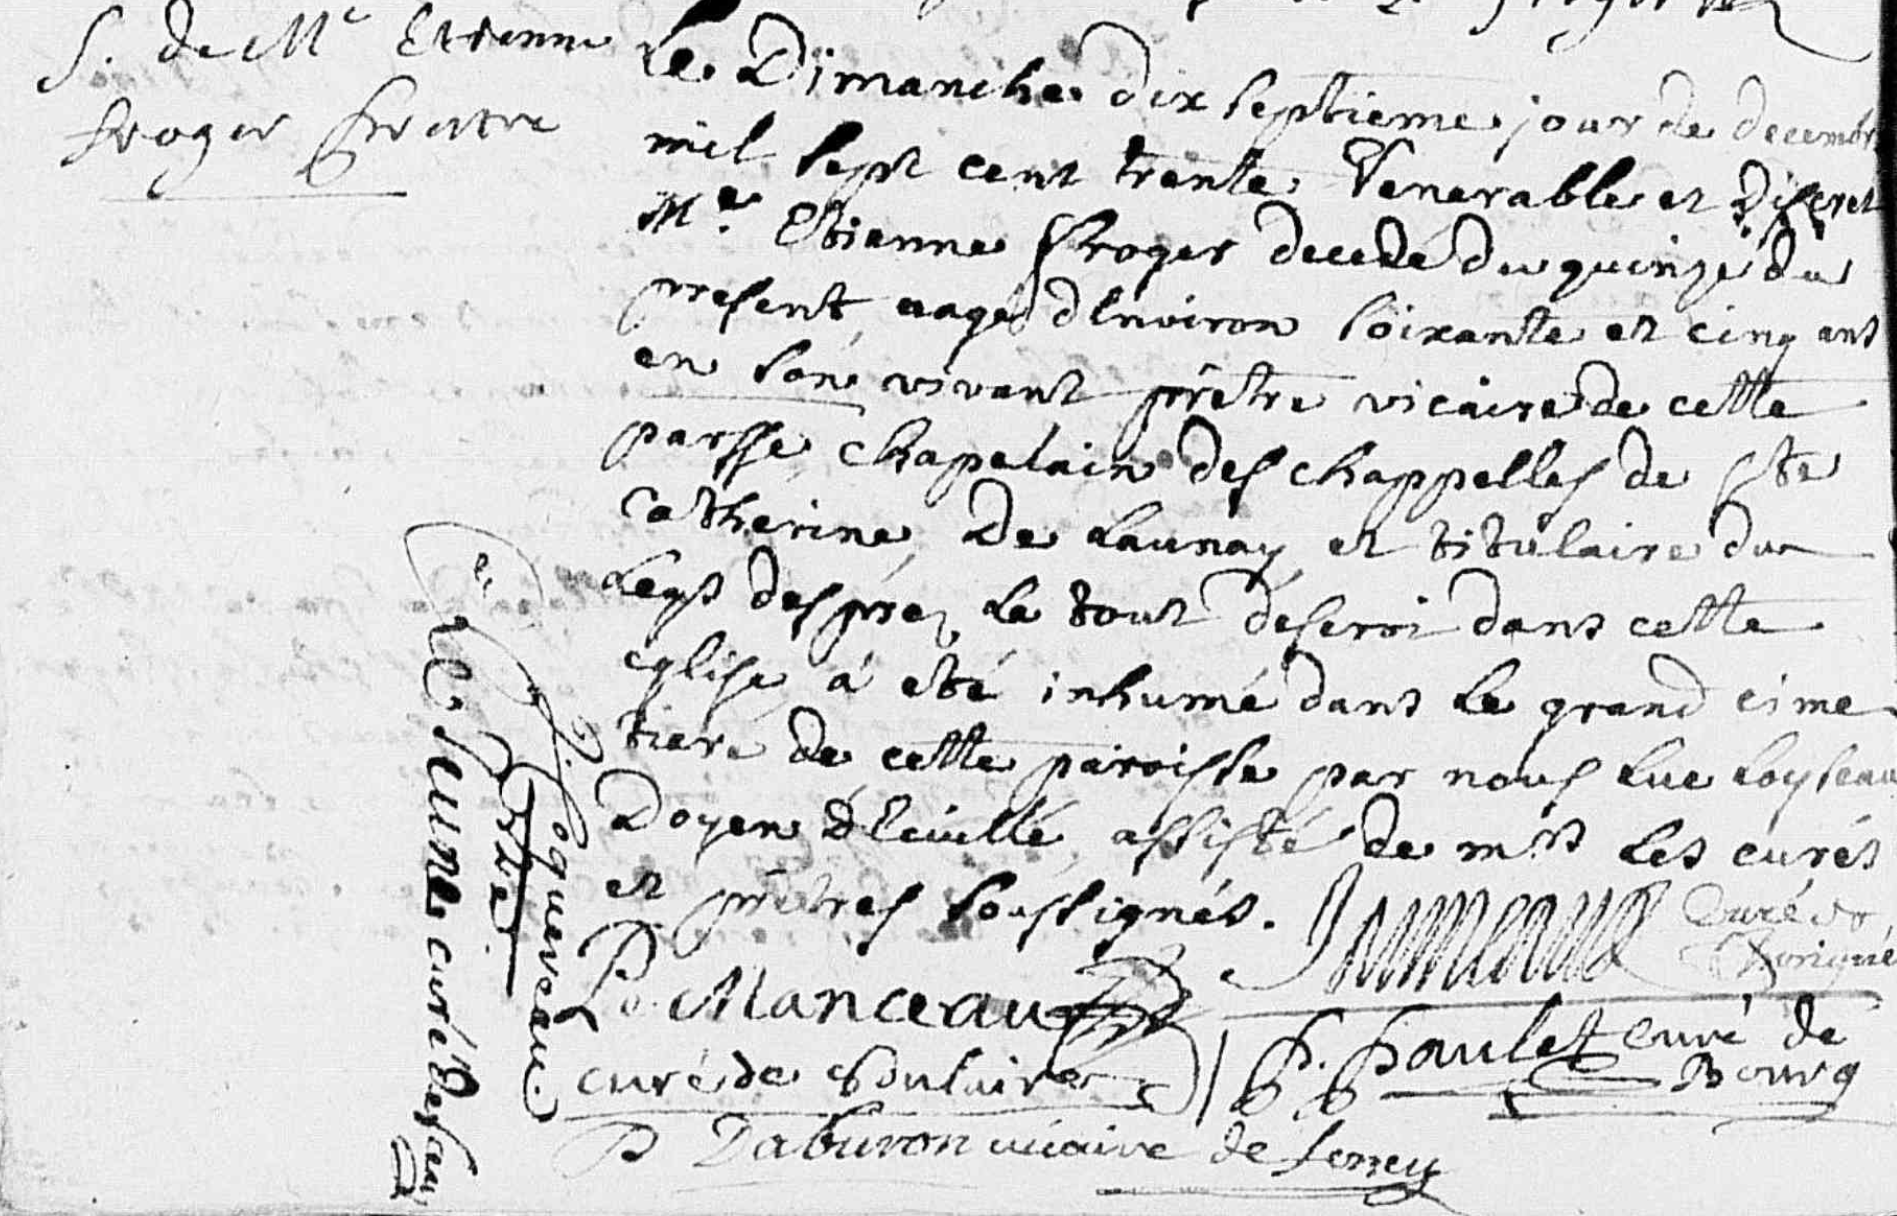 S. de Me Etienne
froger pretre
Le Dimanche dix septieme jour de decembre
mil sept cent trente Venerable et Discret
Me. Etienne froger decedé du quinze du
present aagé d'Environ soixante et cinq ans
en son vivant prêtre vicaire de cette
parsse chapelain des chappelles de ste
Catherine De Launay et titulaire du
Legs desprez le tout deservi dans cette
eglise à eté inhumé dans le grand cime
tiere de cette paroisse par nous Luc Loyseau
Doyen D'Ecuillé assisté de mrs les curés
et prêtres soussignés.
Jummeaux curé de
Thorigné
P. Manceau
curé de Soulaire
P. Paulet curé de
Bourg
P Daburon vicaire de
Le Jeune curé de
Joqueveau